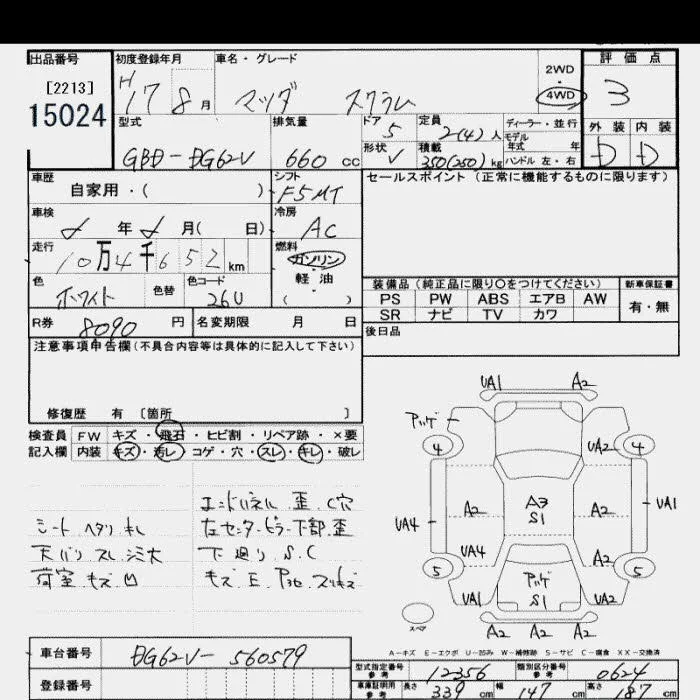 出品番号 初度登録年月 車名・グレード 評価点
[2213] H17 8月 マツダ スクラム 2WD・4WD 3
15024 型式 排気量 ドア 5 定員 2(4)人 ディーラー・並行 外装 内装
GBD-DG62V 660 cc 形状 V 積載 350(250)kg モデル年式 年 ハンドル 左・右 D D
車歴 自家用・( ) シフト F5MT セールスポイント (正常に機能するものに限ります)
車検 年 月( 日) 冷房 AC
走行 10万4千652km 燃料 ガソリン・軽油・( )
色 ホワイト 色替 色コード 26U
装備品(純正品に限り〇をつけてください) 新車保証書
PS PW ABS エアB AW 有・無
SR ナビ TV カワ
R券 8090 円 名変期限 月 日 後日品
注意事項申告欄(不具合内容等は具体的に記入して下さい)
修復歴 有 〔箇所 〕
検査員 FW キズ・飛石・ヒビ割・リペア跡・×要
記入欄 内装 キズ・汚レ・コゲ・穴・スレ・キレ・破レ
エンドパネル 歪.C穴
シート ヘタリ キレ 左センターピラー下部 歪
天バリ スレ 下廻り S.C
荷室 キズ 凹 キズ.E
UA1 A2
アッゲ
4 UA2 4
A2 A3 S1 A2 UA1
UA4
UA4 A2
5 アッゲ S1 5
UA1 UA2
スペア A2 A2 A2
A-キズ E-エクボ U-凹み W-補修跡 S-サビ C-腐食 XX-交換済
車台番号 DG62V-560579
登録番号
型式指定番号 参考 12356 類別区分番号 参考 0624
車庫証明用 参考 長さ 339 cm 幅 147 cm 高さ 187 cm